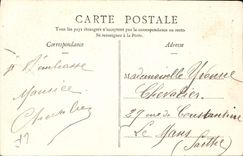 CARTE POSTALE
Tous les pays étrangers n'acceptent pas la correspondance au recto
Se renseigner à la Poste.
Correspondance
Adresse
Mademoiselle Yvonne
Chevalier
Maurice
Chevalier
29 rue de Constantine
Le Mans
(Sarthe)